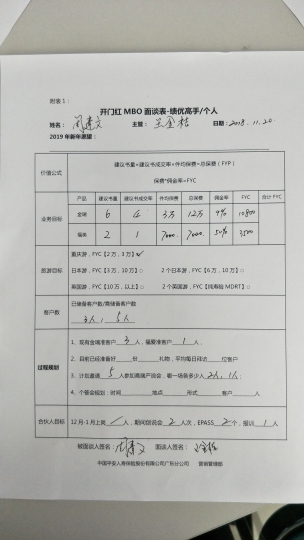 附表1：
开门红 MBO 面谈表-绩优高手/个人
姓名： 主管： 日期：2018.11.20.
2019年新年愿望：
价值公式 建议书量*建议书成交率*件均保费=总保费（FYP）
保费*佣金率=FYC
业务目标 产品 建议书量 建议书成交率 件均保费 总保费 佣金率 FYC 合计FYC
金瑞 6 4 3万 12万 9% 10800
福满 2 1 7000 7000 50% 3500
旅游目标 重庆游，FYC【2万，3万】☑
日本游，FYC【3万，10万】□ 2个日本游，FYC【6万，10万】□
英国游，FYC【10万，以上】□ 2个英国游，FYC【纯寿险MDRT】□
客户数 已储备客户数/需储备客户数
3人，5人
过程规划 1、现有金瑞准客户3人，福爱准客户1人。
2、目前已经准备好 份 礼物，平均每日拜访 位客户
3、计划邀请5人参加高端产说会，哪一场最多少人2人，1人；
4、个签会规划：时间 地点 形式 客户 人
合伙人目标 12月-1月上岗 人，期间创说会2人次，EPASS2个，报训1人
被面谈人签名： 面谈人签名：
中国平安人寿保险股份有限公司广东分公司 营销管理部